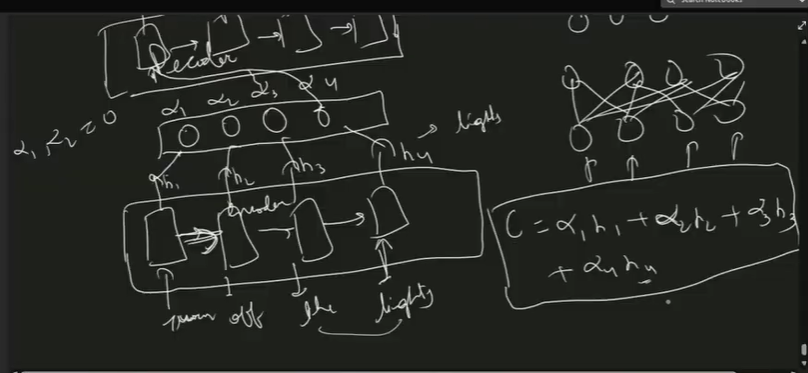 Decoder
α₁ α₂ α₃ α₄
α₁, α₂ = 0
→ lights
h₁ h₂ h₃ h₄
Encoder
turn off the lights
C = α₁h₁ + α₂h₂ + α₃h₃
+ α₄h₄